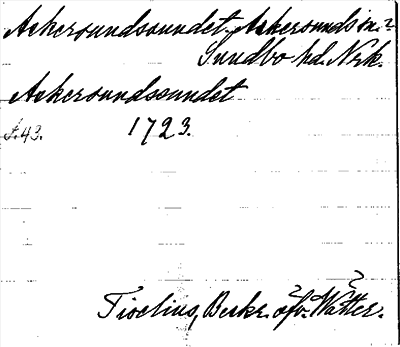 Askersundssundet, Askersunds sn.?
Sundbo hd. Nrk.
Askersundssundet
s. 43. 1723.
Tiselius, Beskr. öfv. Vätter.